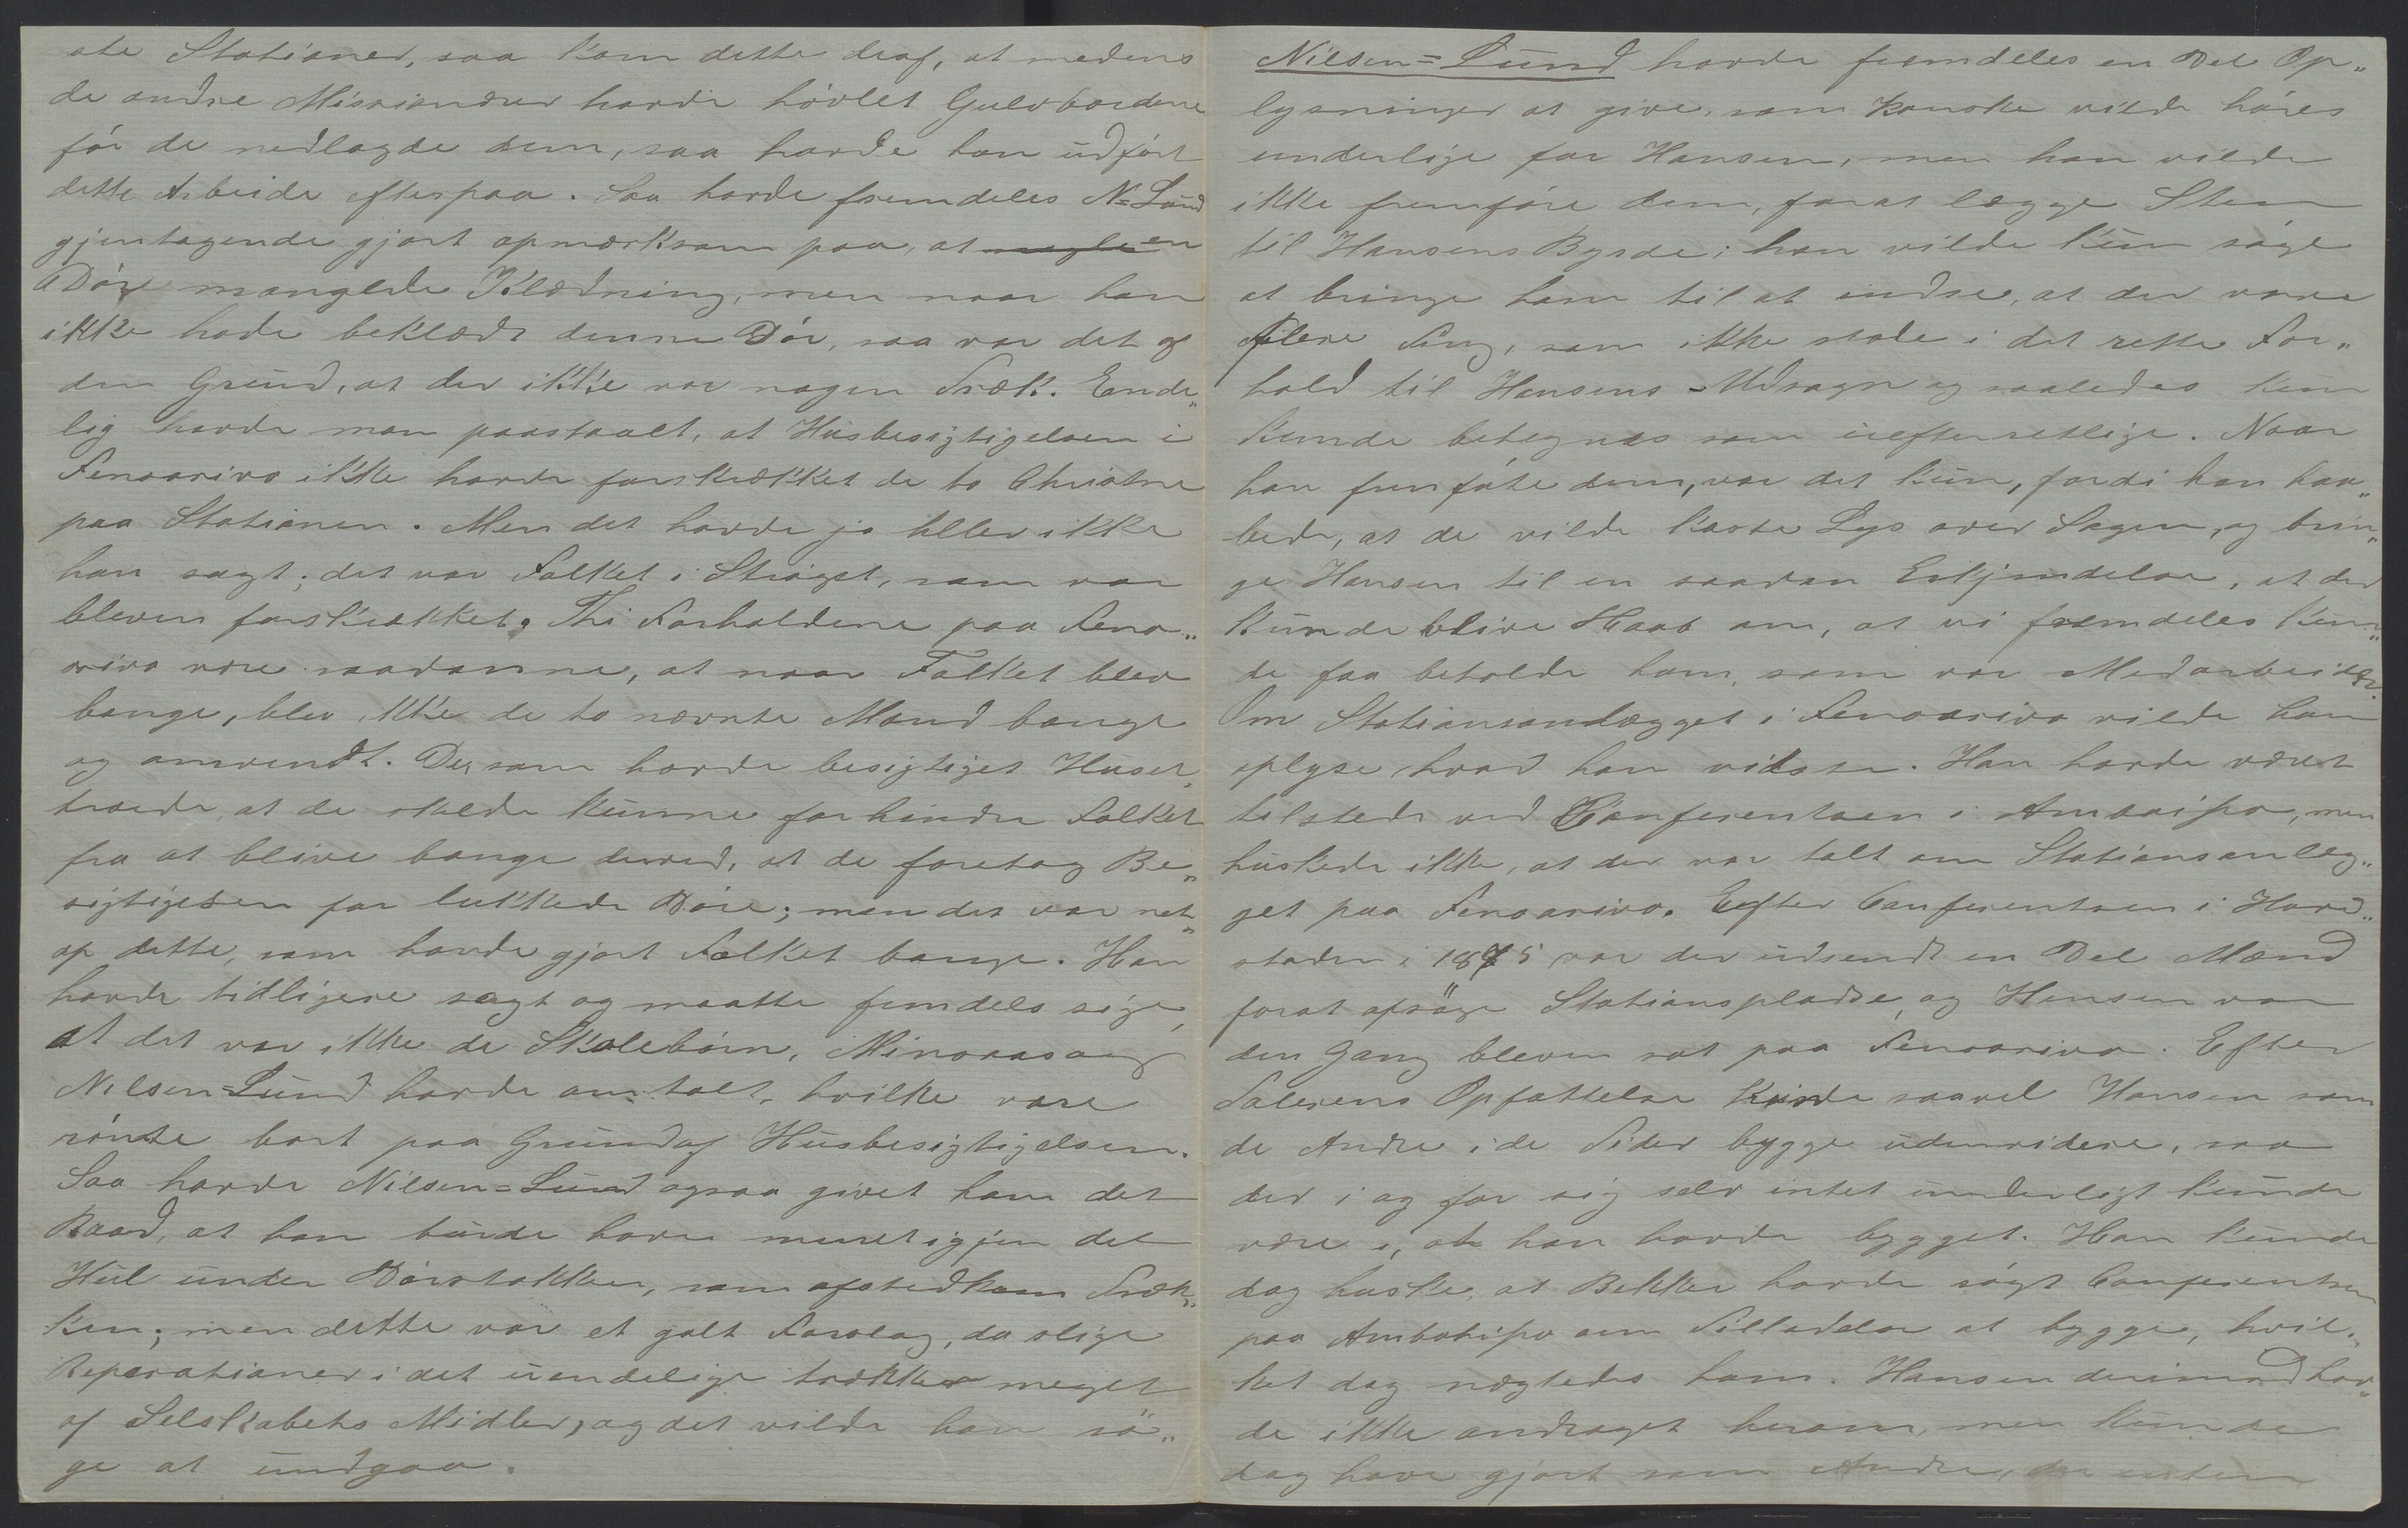 ste Stationer, saa kom dette deraf, at medens
de andre Missionærer havde hövlet Gulvbordene
för de nedlagde dem, saa havde han udfört
dette Arbeide efterpaa. Saa havde fremdeles N=Lund
gjentagende gjort opmærksom paa, at nogle en
Dör manglede Klædning, men naar han
ikke havde beklædt denne Dör, saa var det af
den Grund, at der ikke var nogen Træk. Ende„
lig havde man paastaaet, at Husbesigtigelsen i
Fenoarivo ikke havde forskrækket de to Christne
paa Stationen. Men det havde jo heller ikke
han sagt; det var Folket i Ströget, som var
bleven forskrækket. Thi Forholdene paa Feno„
arivo vare saadanne, at naar Folket blev
bange, blev ikke de to nævnte Mænd bange
og omvendt. De, som havde besigtiget Huset,
troede, at de skulde kunne forhindre Folket
fra at blive bange derved, at de foretog Be„
sigtigelsen for lukkede Döre; men det var net„
op dette, som havde gjort Folket bange. Han
havde tidligere sagt og maatte fremdels sige,
at det var ikke de Skolebörn, Minoasoa og
Nilsen=Lund havde omtalt, hvilke vare
römte bort paa Grund af Husbesigtigelsen.
Saa havde Nilsen=Lund ogsaa givet ham det
Raad, at han burde have muret igjen det
Hul under Dörstokken, som afstedkom Træk„
ken; men dette var et galt Forslag, da slige
Reparationer i det uendelige trækker meget
af Selskabets Midler, og det vilde han sö„
ge at undgaa.
Nilsen=Lund havde fremdeles en Del Op„
lysninger at give, som kanske vilde höres
underlige for Hansen, men han vilde
ikke fremföre dem, forat lægge Sten
til Hansens Byrde; han vilde kun söge
at bringe ham til at indse, at der vare
flere Ting, som ikke stode i det rette For„
hold til Hansens Udsagn og saaledes kun
kunde betegnes som uefterretlige. Naar
han fremförte dem, var det kun, fordi han haa„
bede, at de vilde kaste Lys over Sagen, og brin„
ge Hansen til en saadan Erkjendelse, at der
kunde blive Haab om, at vi fremdeles kun„
de faa beholde ham, som vor Medarbeider.
Om Stationsanlægget i Fenoarivo vilde han
oplyse, hvad han vidste. Han havde været
tilstede ved Conferentsen i Ambohipo, men
huskede ikke, at der var talt om Stationsanlæg„
get paa Fenoarivo. Efter Conferentsen i Hoved„
staden i 1875 var der udsendt en Del Mænd
forat opsöge Stationspladse, og Hansen var
den Gang bleven sat paa Fenoarivo. Efter
Talerens Opfattelse kunde saavel Hansen som
de Andre i de Tider bygge udenvidere, saa
der i og for sig selv intet underligt kunde
være i, at han havde bygget. Han kunde
dog huske, at Bekker havde sögt Conferentsen
paa Ambohipo om Tilladelse at bygge, hvil„
ket dog nægtedes ham. Hansen derimod hav„
de ikke andraget herom, men kunde
dog have gjort som Andre, der